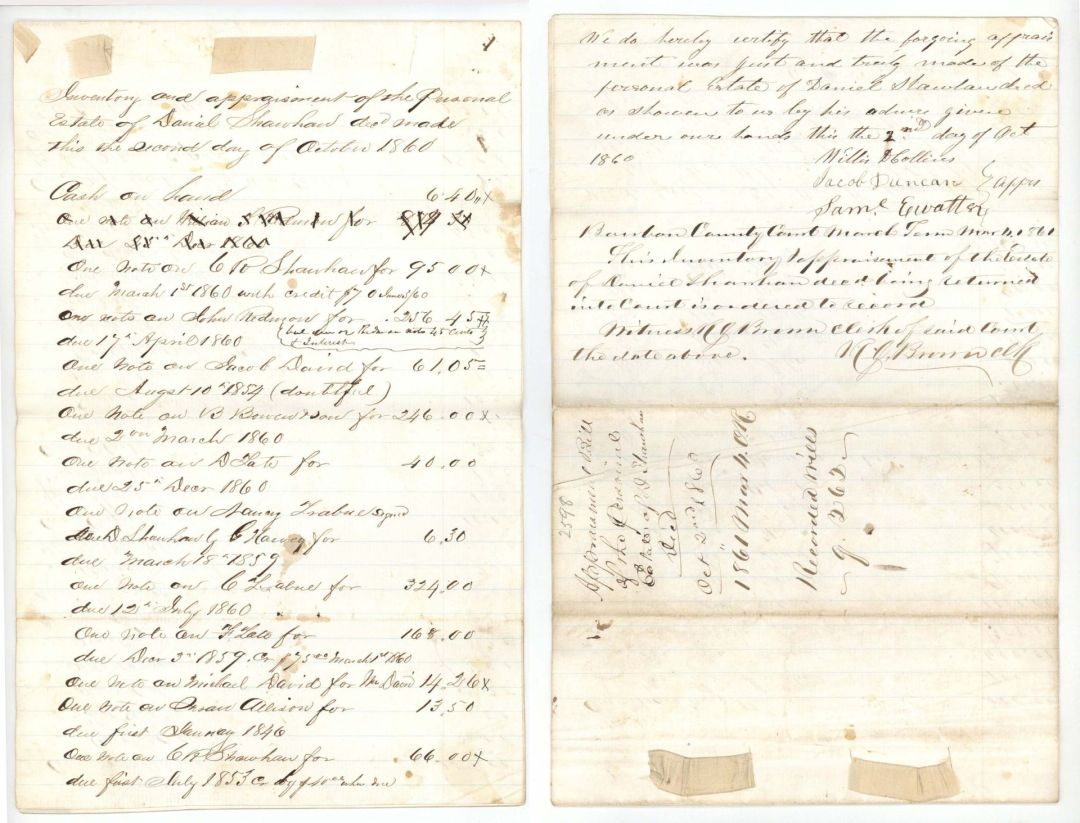 1
Inventory and appraisment of the Personal
Estate of Daniel Shawhan decd made
this the second day of October 1860
Cash on hand 6.40 x
One note on S Redmon for
One Note on C R Shawhan for 95 00 x
due March 1st 1860 with credit $70 /60
one note on John Redmon for 256 45
due 17th April 1860
& Interest
One Note on Jacob David for 61.05
due Augst 10th 1854 (doubtful)
One Note on B Bowen & Son for 246.00 x
due 2 March 1860
One Note on D Tate for 40.00
due 25th Decr 1860
One Note on Nancy Trabue signed
D Shawhan & C Harvey for 6.30
due March 18th 1859
One Note on C Trabue for 324.00
due 12th July 1860
One Note on F Tate for 168.00
due Decr 3rd 1859. Cr $75 March 1st 1860
One Note on Michael David for Wm David 14.26 x
One Note on Allison for 13.50
due first January 1846
One Note on C R Shawhan for 66.00 x
due first July 1853 Cr by $10 when due
We do hereby certify that the forgoing apprais
ment was just and truly made of the
personal Estate of Daniel Shawhan decd
as shown to us by his admr given
under our hands this the 2nd day of Oct
1860
Willis D Collins
Jacob Duncan } apprs
Saml Ewalt
Bourbon County Court March Term Mar 4, 1861
This Inventory & appraisement of the Estate
of Daniel Shawhan decd being returned
into Court is ordered to record
Witness R J Brown clerk of said Court
the date above. R J Brown clk
2598
Appraisment Bill
of the Personal
Estate of D Shawhan
Decd
Oct 2nd 1860
1861 Mar 4. O.R
Recorded Will
Q. 262